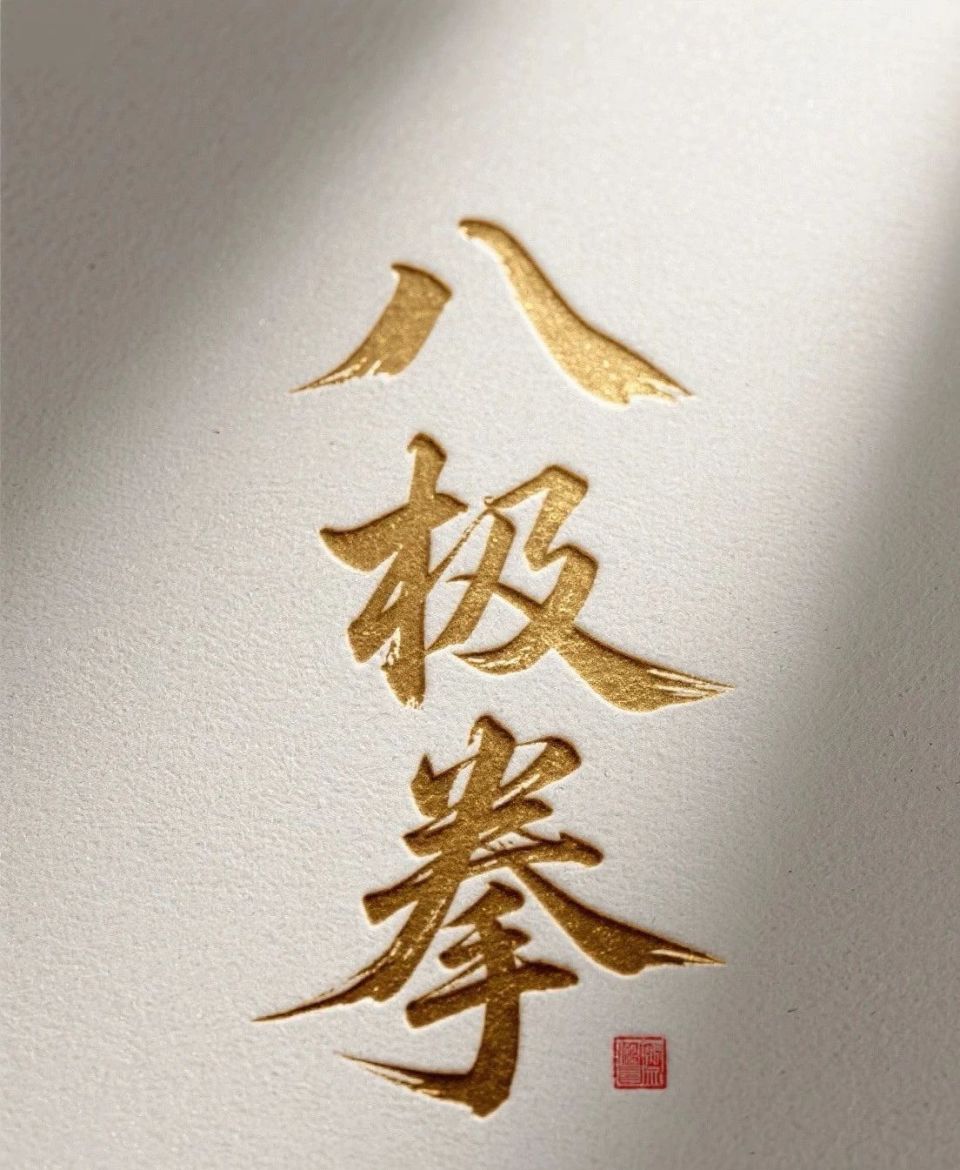 八极拳